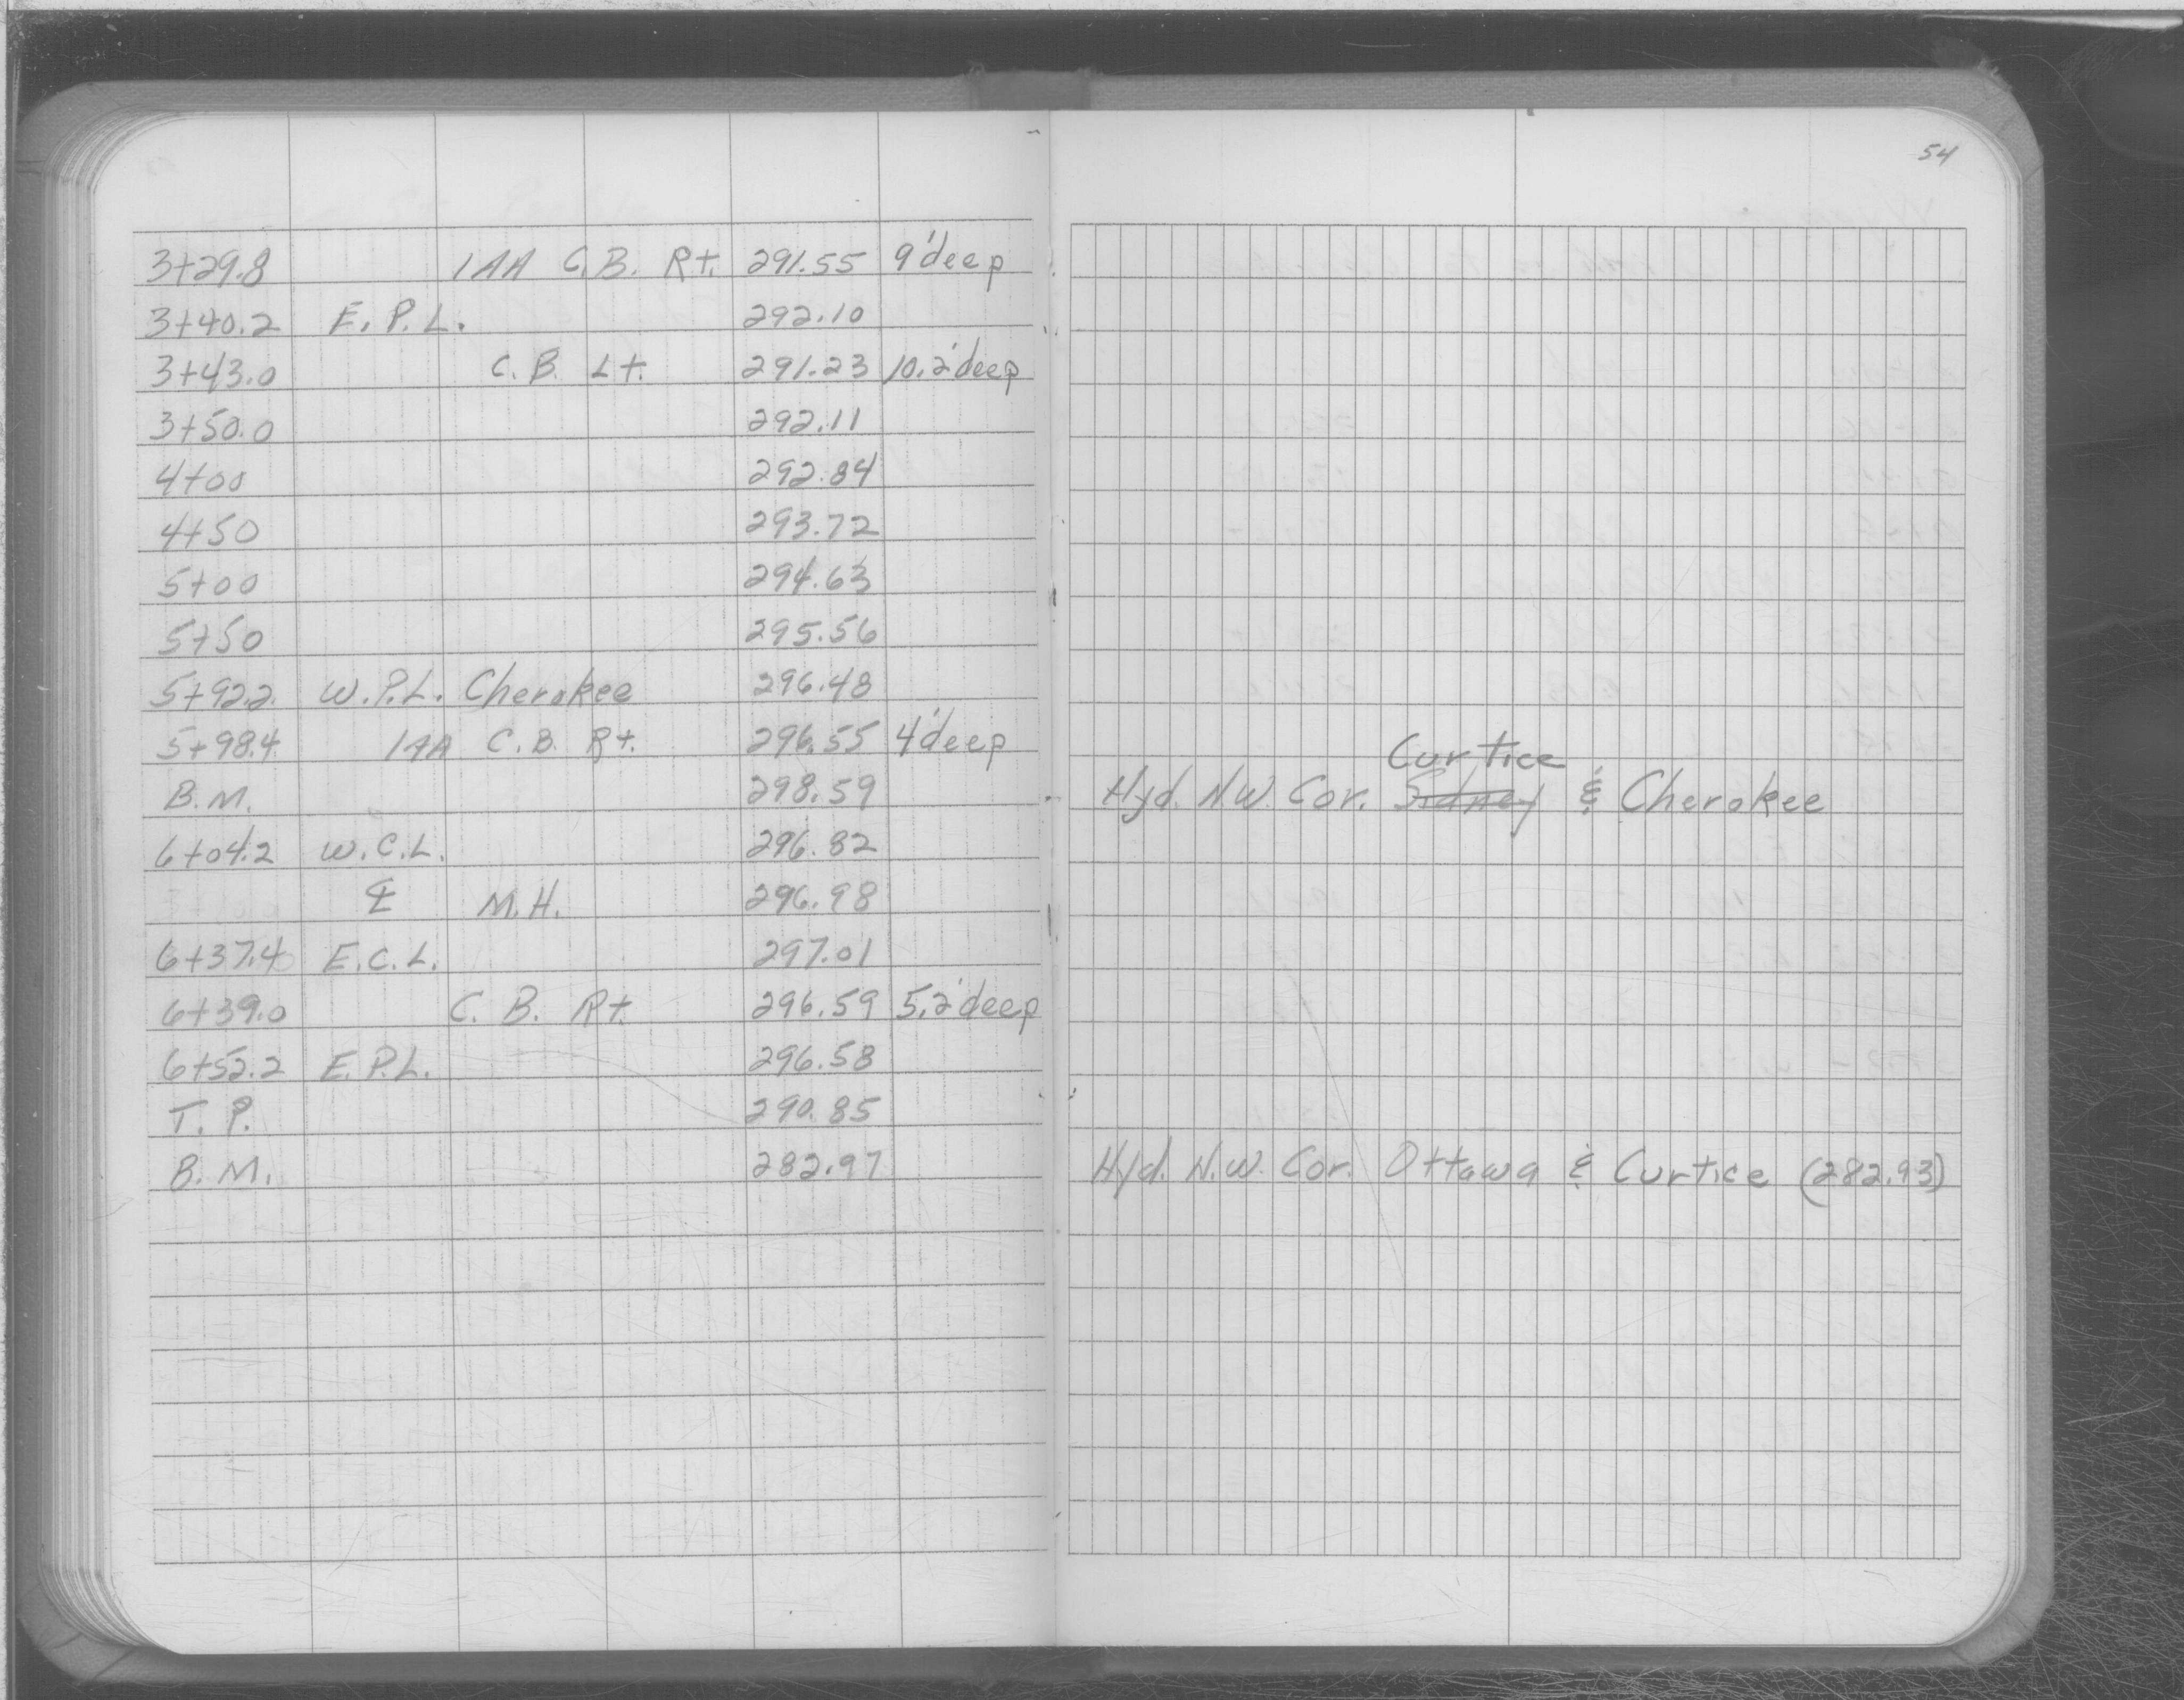 54
3+29.8 1AA C.B. Rt. 291.55 9' deep
3+40.2 E.P.L. 292.10
3+43.0 C.B. Lt. 291.23 10.2' deep
3+50.0 292.11
4+00 292.84
4+50 293.72
5+00 294.63
5+50 295.56
5+92.2 W.P.L. Cherokee 296.48
5+98.4 1AA C.B. Rt. 296.55 4' deep
Curtice
B.M. 298.59 Hyd. N.W. Cor. Sidney & Cherokee
6+04.2 W.C.L. 296.82
℄ M.H. 296.98
6+37.4 E.C.L. 297.01
6+39.0 C.B. Rt. 296.59 5.2' deep
6+52.2 E.P.L. 296.58
T.P. 290.85
B.M. 282.97 Hyd. N.W. Cor. Ottawa & Curtice (282.93)